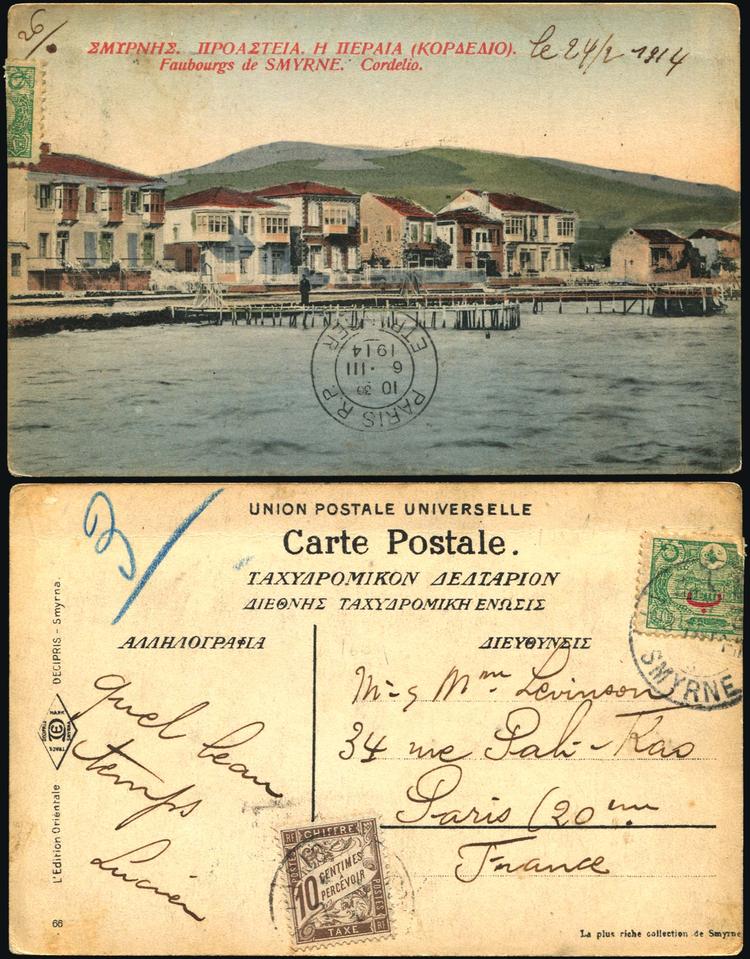 26/.
ΣΜΥΡΝΗΣ. ΠΡΟΑΣΤΕΙΑ. Η ΠΕΡΑΙΑ (ΚΟΡΔΕΔΙΟ).
Faubourgs de SMYRNE. Cordelio.
le 24/2 1914
PARIS R.P.
ETRANGER
10 30
6 · III
1914
UNION POSTALE UNIVERSELLE
Carte Postale.
ΤΑΧΥΔΡΟΜΙΚΟΝ ΔΕΛΤΑΡΙΟΝ
ΔΙΕΘΝΗΣ ΤΑΧΥΔΡΟΜΙΚΗ ΕΝΩΣΙΣ
ΑΛΛΗΛΟΓΡΑΦΙΑ
ΔΙΕΥΘΥΝΣΙΣ
SMYRNE
quel beau
temps
Lucien
Mr & Mme Levinson
34 rue Pali-Kao
Paris (20eme
France
CHIFFRE
10 CENTIMES
A PERCEVOIR
POSTES
RF
TAXE
L'Edition Oriéntale
DECIPRIS - Smyrna.
TRADE MARK
66
La plus riche collection de Smyrne